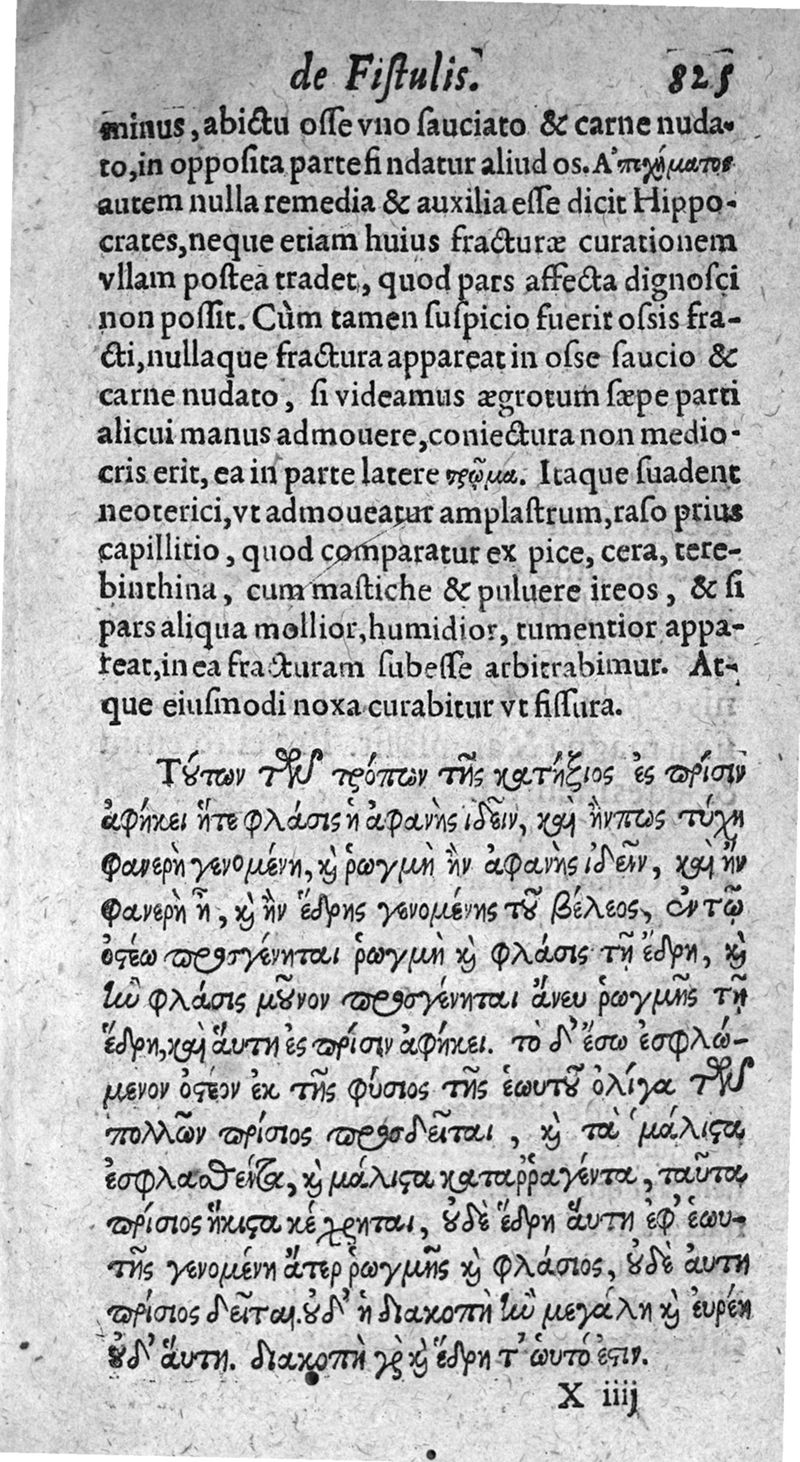 de Fiſtulis. 825
minus, abictu oſſe vno ſauciato & carne nuda-
to, in oppoſita parte findatur aliud os. Ἀπηχήματος
autem nulla remedia & auxilia eſſe dicit Hippo-
crates, neque etiam huius fracturæ curationem
vllam poſtea tradet, quod pars affecta dignoſci
non poſſit. Cùm tamen ſuſpicio fuerit oſsis fra-
cti, nullaque fractura appareat in oſse ſaucio &
carne nudato, ſi videamus ægrotum ſæpe parti
alicui manus admouere, coniectura non medio-
cris erit, ea in parte latere τρῶμα. Itaque ſuadent
neoterici, vt admoueatur amplaſtrum, raſo prius
capillitio, quod comparatur ex pice, cera, tere-
binthina, cum maſtiche & puluere ireos, & ſi
pars aliqua mollior, humidior, tumentior appa-
reat, in ea fracturam ſubeſſe arbitrabimur. At-
que eiuſmodi noxa curabitur vt fiſſura.
Τούτων τῶν τρόπων τῆς κατήξιος ἐς πρίσιν
ἀφήκει ἥτε φλάσις ἡ ἀφανὴς ἰδεῖν, καὶ ἤνπως τύχη
φανερὴ γενομένη, καὶ ῥωγμὴ ἢν ἀφανὴς ἰδεῖν, καὶ ἢν
φανερὴ ᾖ, καὶ ἢν ἕδρης γενομένης τοῦ βέλεος, ἐν τῷ
ὀστέω προσγένηται ῥωγμὴ καὶ φλάσις τῇ ἕδρη, καὶ
ἢν φλάσις μοῦνον προσγένηται ἄνευ ῥωγμῆς τῇ
ἕδρη, καὶ ἅυτη ἐς πρίσιν ἀφήκει. τὸ δ' ἔσω ἐσφλώ-
μενον ὀστέον ἐκ τῆς φύσιος τῆς ἑωυτοῦ ὀλίγα τῶν
πολλῶν πρίσιος προσδεῖται, καὶ τὰ μάλιστα
ἐσφλασθέντα, καὶ μάλιστα καταῤῥαγέντα, ταῦτα
πρίσιος ἥκιστα κέχρηται, οὐδὲ ἕδρη ἅυτη ἐφ' ἑωυ-
τῆς γενομένη ἄτερ ῥωγμῆς καὶ φλάσιος, οὐδὲ ἀυτη
πρίσιος δεῖται. οὐδ' ἡ διακοπὴ ἢν μεγάλη καὶ ἐυρέη
οὐδ' ἅυτη. διακοπὴ γὰρ καὶ ἕδρη τ' ὠυτό ἐστιν.
X iiij